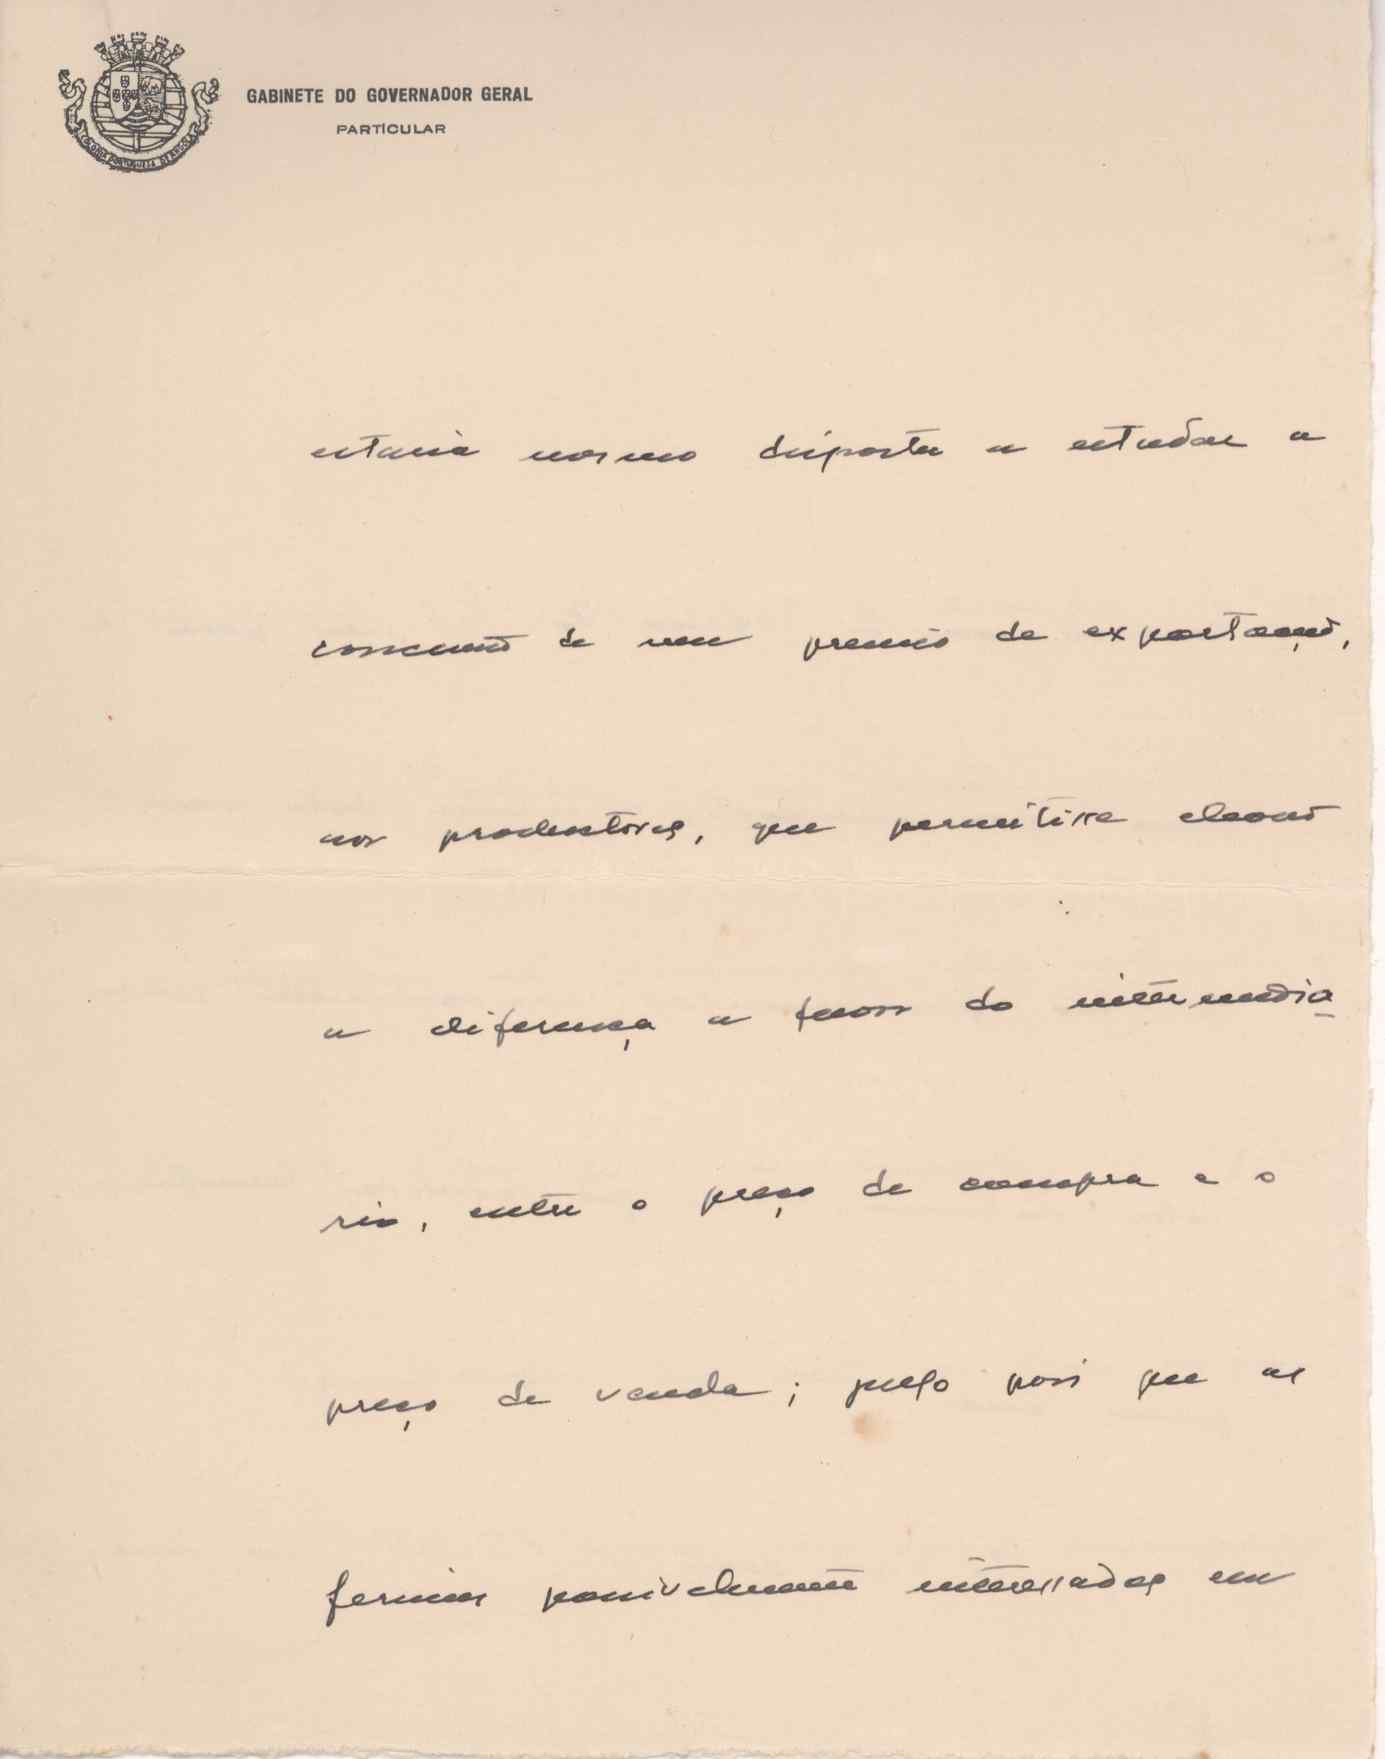 GABINETE DO GOVERNADOR GERAL
PARTICULAR
estaria mesmo disposta a estudar a
concessão de um premio de exportação,
aos productores, que permitisse
a diferença a favor do intermedia
rio, entre o preço de compra e o
preço de venda; julgo pois que as
firmas possivelmente interessadas em